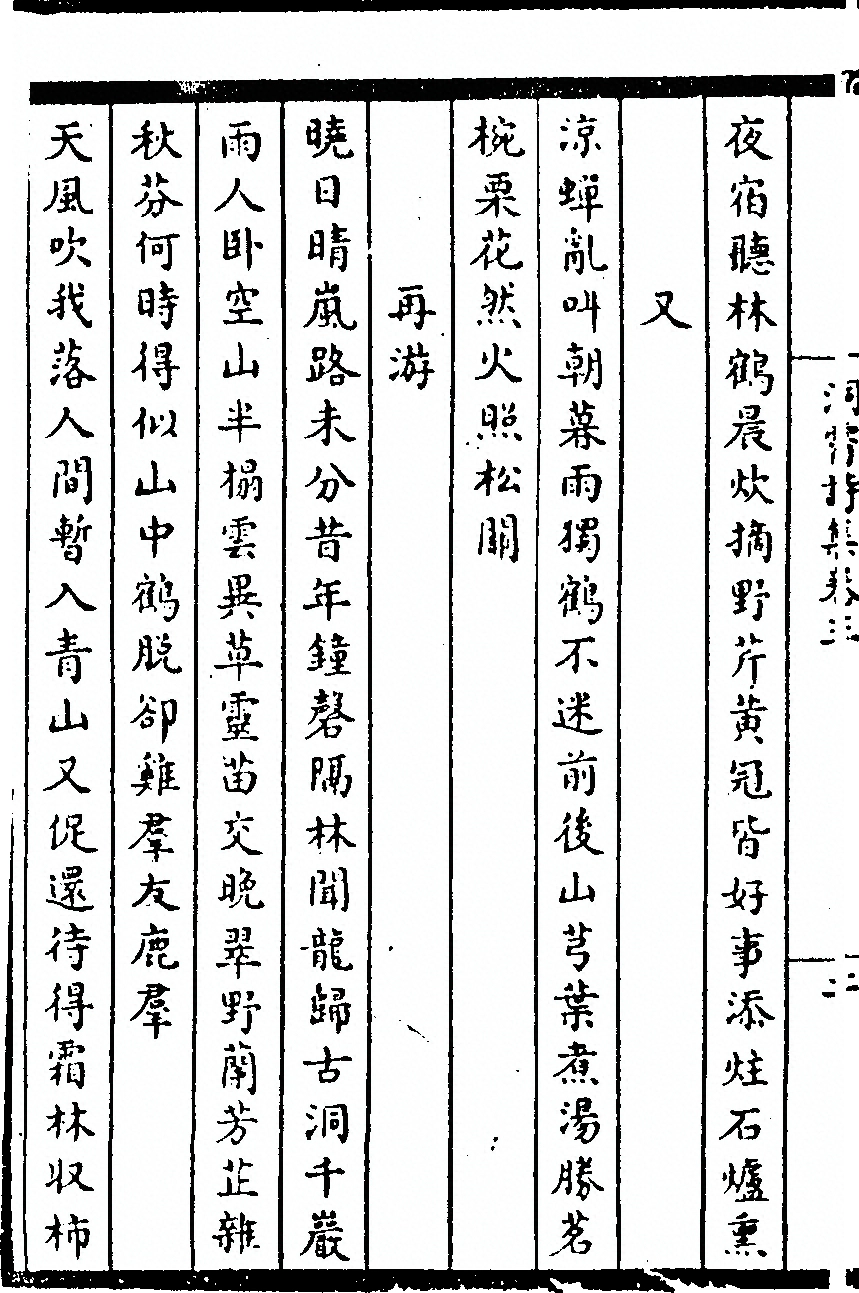 洞霄詩集卷三
二
夜宿聽林鶴晨炊摘野芹黄冠皆好事添炷石爐熏
又
凉蟬亂叫朝暮雨獨鶴不迷前後山芎葉煮湯勝茗
椀栗花然火照松關
再游
曉日晴嵐路未分昔年鐘磬隔林聞龍歸古洞千巖
雨人卧空山半榻雲異草靈苗交晚翠野蘭芳芷雜
秋芬何時得似山中鶴脱卻雞羣友鹿羣
天風吹我落人間暫入青山又促還待得霜林収柿